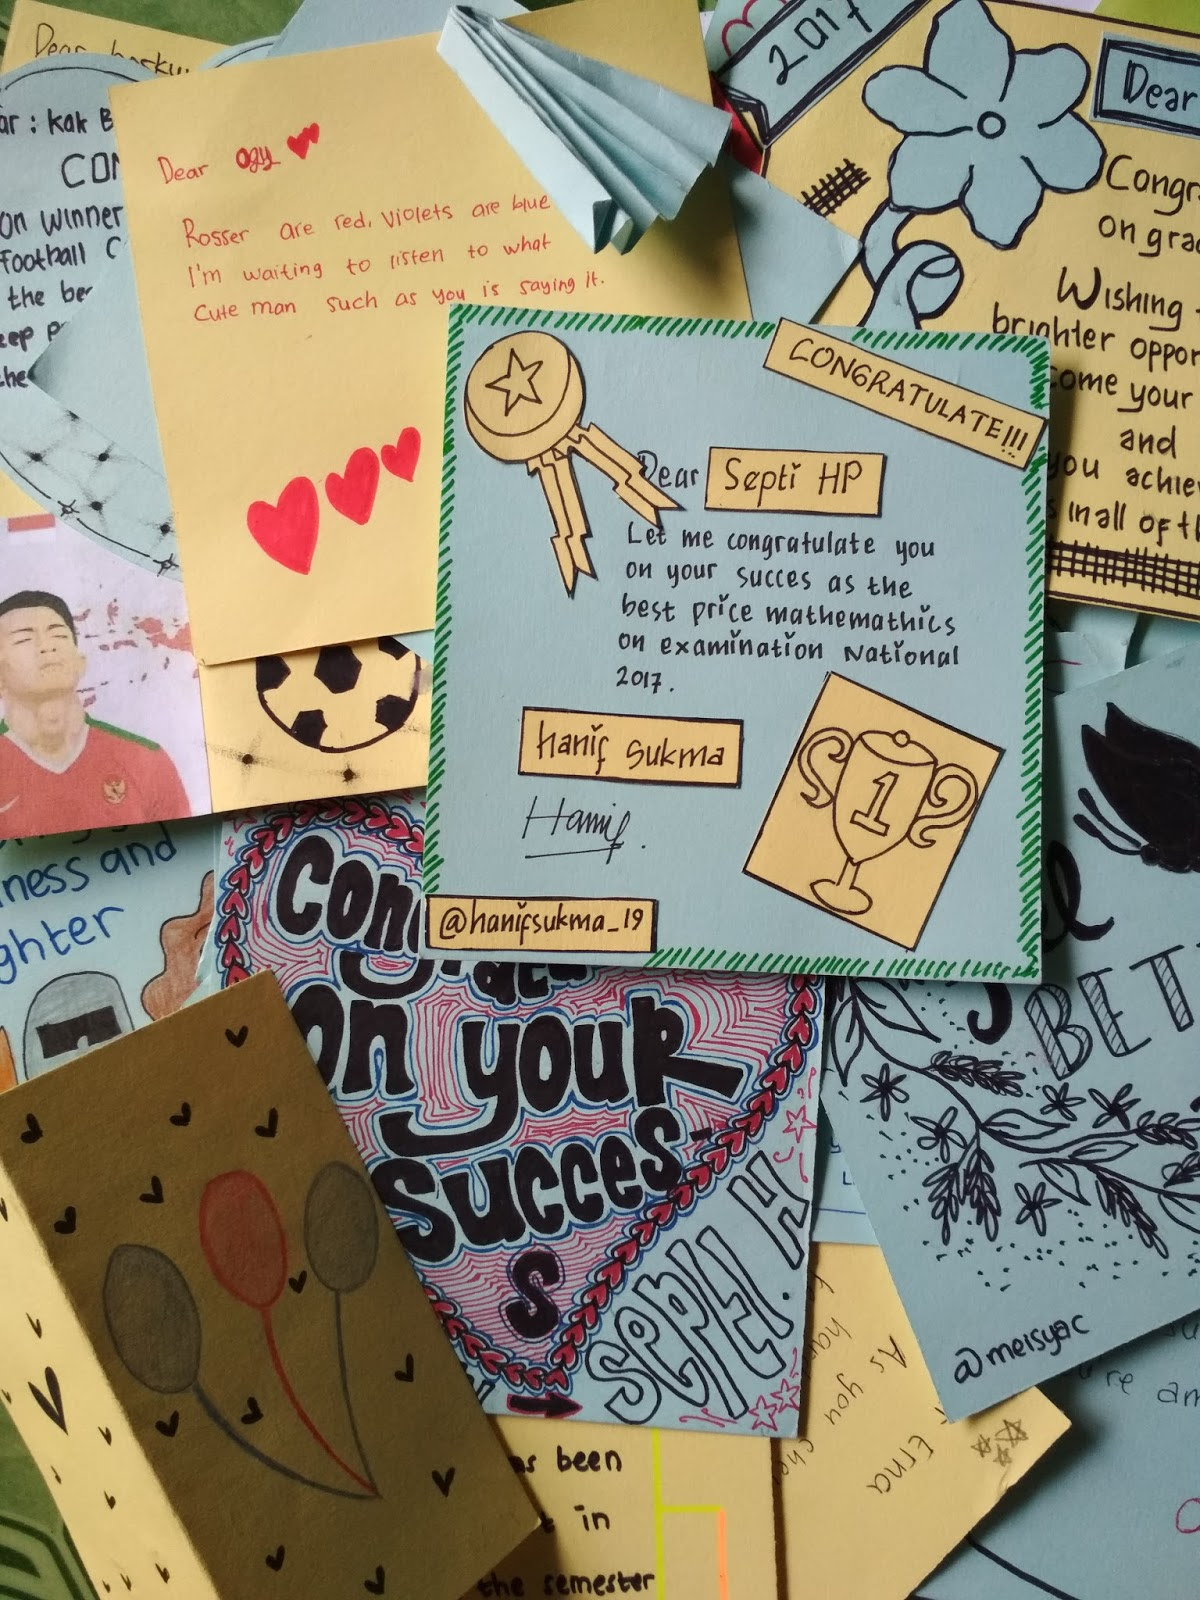 Dear
ar : kak B
CON
on winner
football C
the be
eep p
the
Dear ogy
Rosser are red, violets are blue
I'm waiting to listen to what
Cute man such as you is saying it.
2017
Dear
Congra
on grad
Wishing
brighter oppor
come your
and
you achie
in all of th
CONGRATULATE!!!
Dear Septi HP
Let me congratulate you
on your succes as the
best price mathemathics
on examination National
2017.
hanif sukma
Hanif
@hanifsukma_19
1
ness and
ghter
Con
on your
Succes-
S
SEPTI. H
BET
@meisyac
As you
Erna
as been
in
the semester